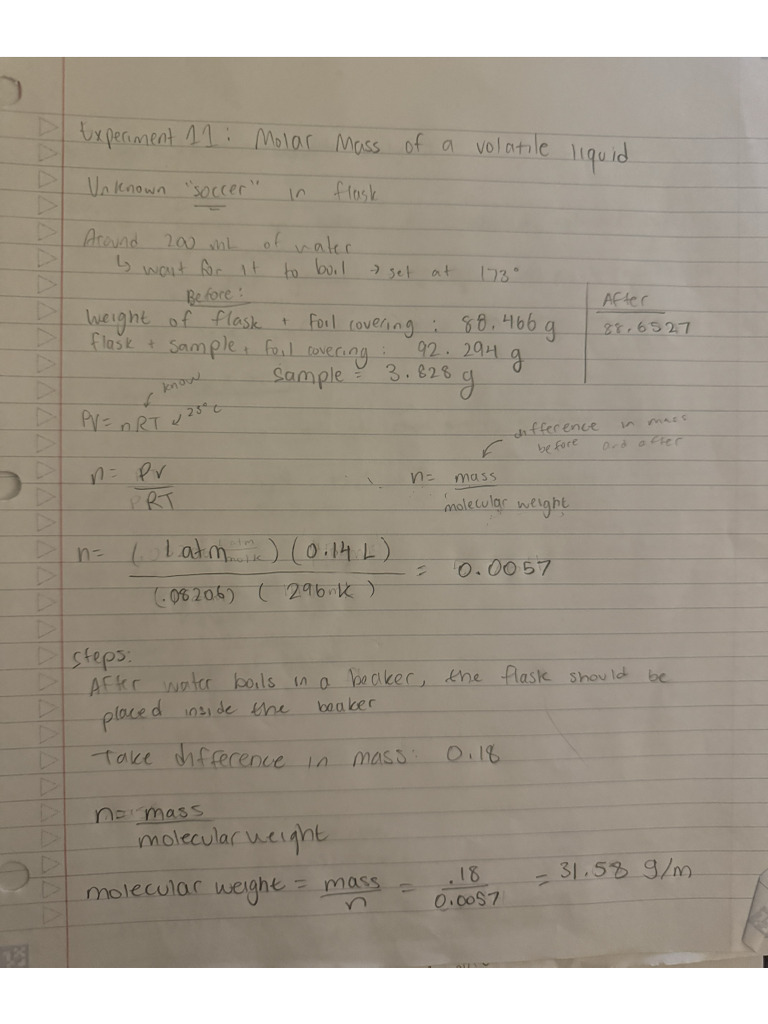 Experiment 11: Molar Mass of a volatile liquid
Unknown "soccer" in flask
Around 200 mL of water
↳ wait for it to boil → set at 173°
Before:
Weight of flask + foil covering : 88.466 g
flask + sample + foil covering : 92.294 g
Sample = 3.828 g
After
88.6527
know
PV = nRT ↙ 25°C
difference in mass
before and after
n = PV
RT
n = mass
molecular weight
n = (1 atm) (0.14 L) = 0.0057
(.08206) ( K )
steps:
After water boils in a beaker, the flask should be
placed inside the beaker
Take difference in mass: 0.18
n = mass
molecular weight
molecular weight = mass = .18 = 31.58 g/m
n 0.0057